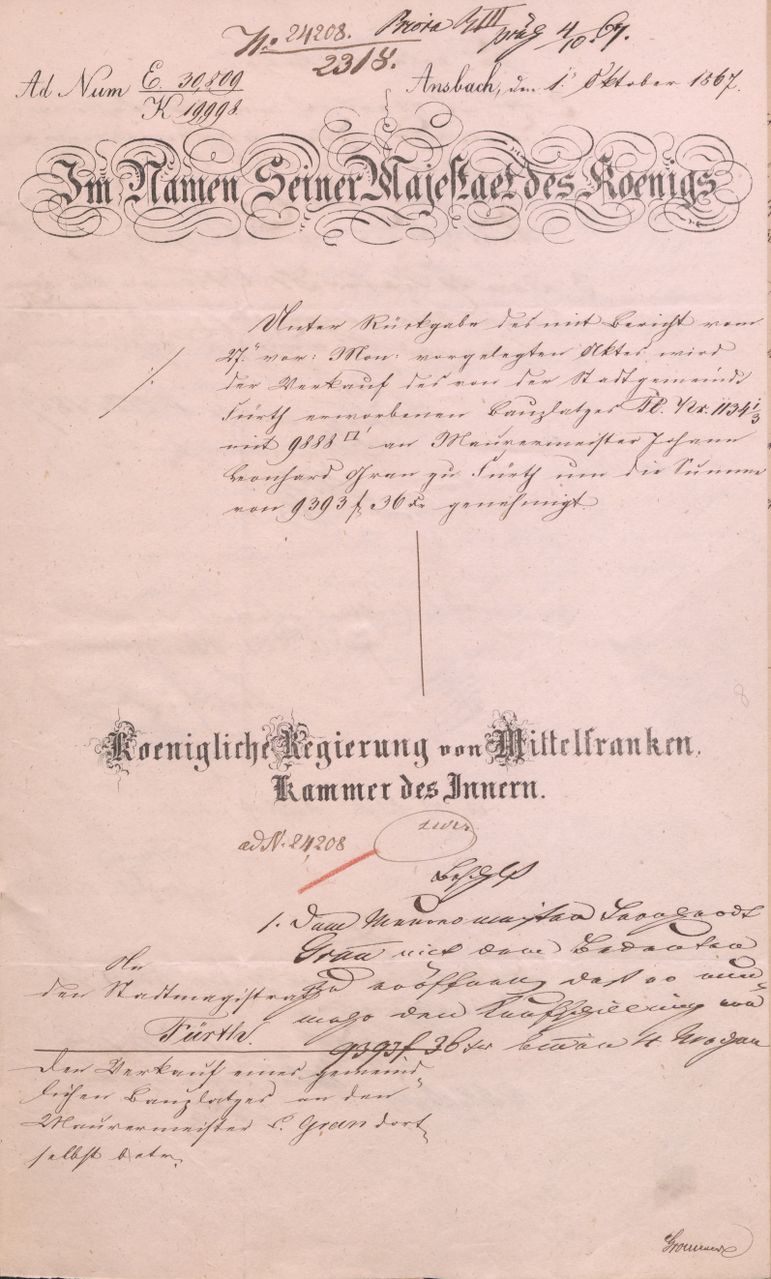 No. 24208. präs 4/10. 67.
2318.
Ad Num E. 30,809
K 19998.
Ansbach, den 1. Oktober 1867.
Im Namen Seiner Majestaet des Koenigs
Unter Rückgabe des mit Bericht vom
27. vor: Mon: vorgelegten Aktes wird
der Verkauf des von der Stadtgemeinde
Fürth erworbenen Bauplatzes Pl. Nr. 1134 1/3
mit 9888 □' an Maurermeister Johann
Leonhard Gran zu Fürth um die Summe
von 9393 f 36 kr genehmigt.
Koenigliche Regierung von Mittelfranken,
Kammer des Innern.
ad N. 24,208
Beschluß
1. Dem Maurermeister Leonhardt
Gran mit dem Bedeuten
zu eröffnen, daß er nun-
mehr den Kaufschilling von
9393 f 36 kr binnen 4 Wochen
An
den Stadtmagistrat
Fürth.
Den Verkauf eines gemeind-
lichen Bauplatzes an den
Maurermeister L. Gran dort-
selbst betr.